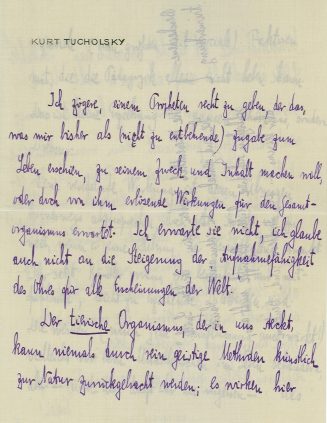 KURT TUCHOLSKY
Ich zögere, einem Propheten recht zu geben, der das,
was mir bisher als (nicht zu entbehrende) Zugabe zum
Leben erschien, zu seinem Zweck und Inhalt machen will,
oder doch von ihm erlösende Wirkungen für den Gesamt-
organismus erwartet. Ich erwarte sie nicht, ich glaube
auch nicht an die Steigerung der Aufnahmefähigkeit
des Ohres für alle Erscheinungen der Welt.
Der tierische Organismus, der in uns steckt,
kann niemals durch rein geistige Methoden künstlich
zur Natur zurückgebracht werden; es wirken hier